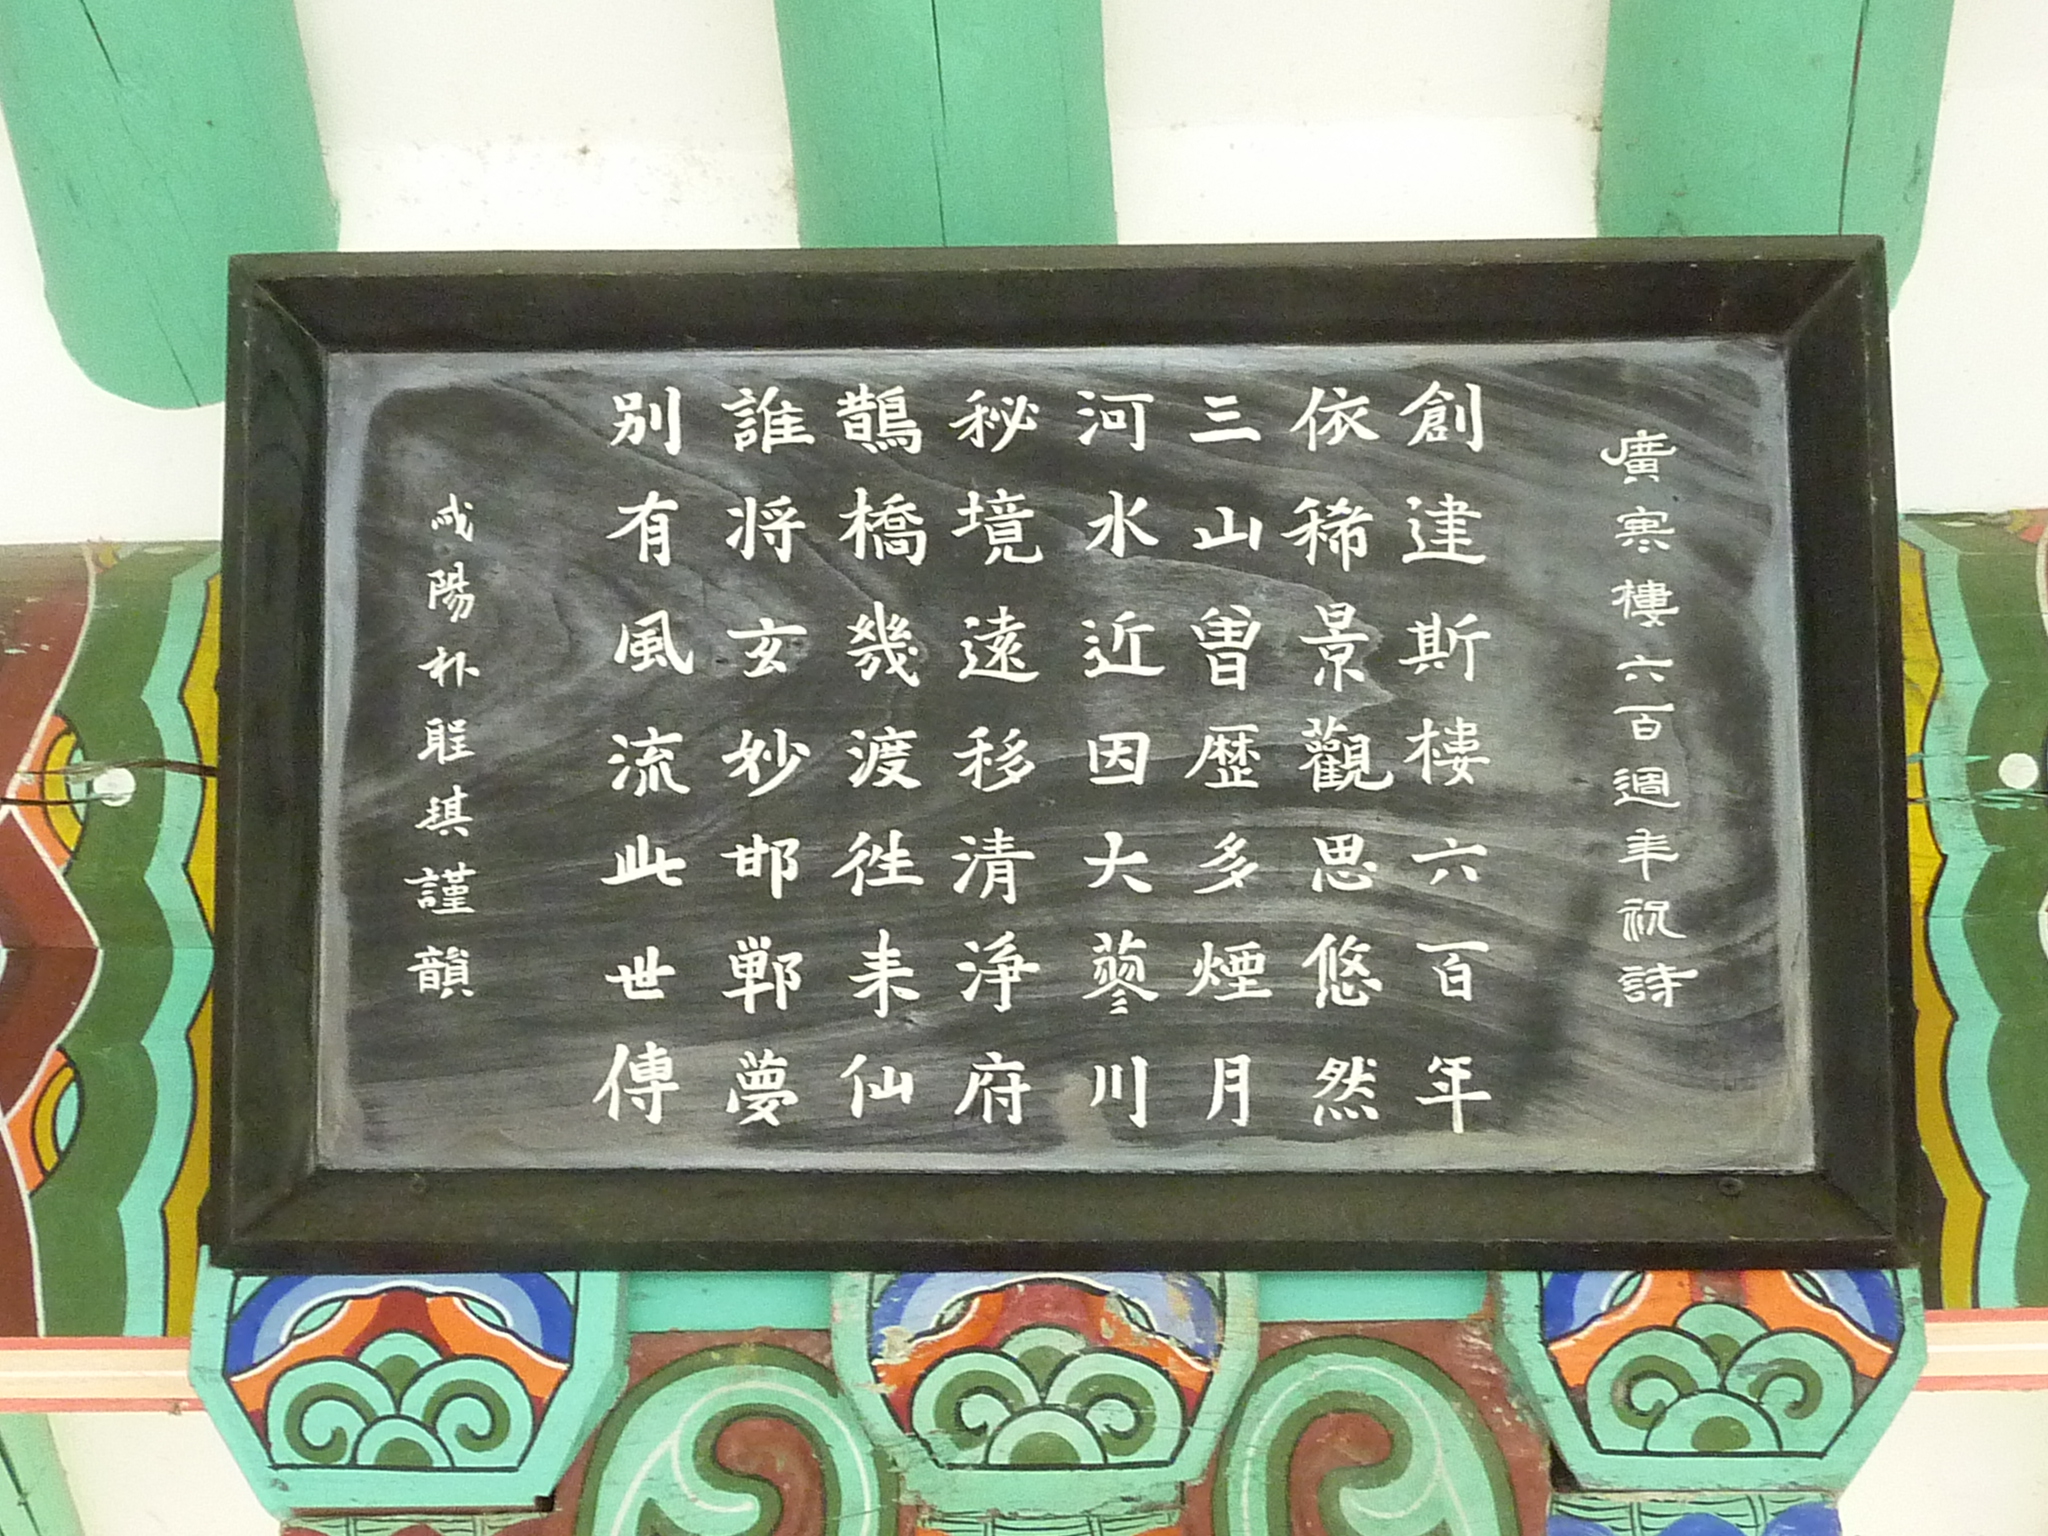 廣寒樓六百週年祝詩
創建斯樓六百年
依稀景觀思悠然
三山曽歴多煙月
河水近因大蓼川
秘境遠移清淨府
鵲橋幾渡徃来仙
誰将玄妙邯鄲夢
別有風流此世傳
咸陽朴琪謹韻